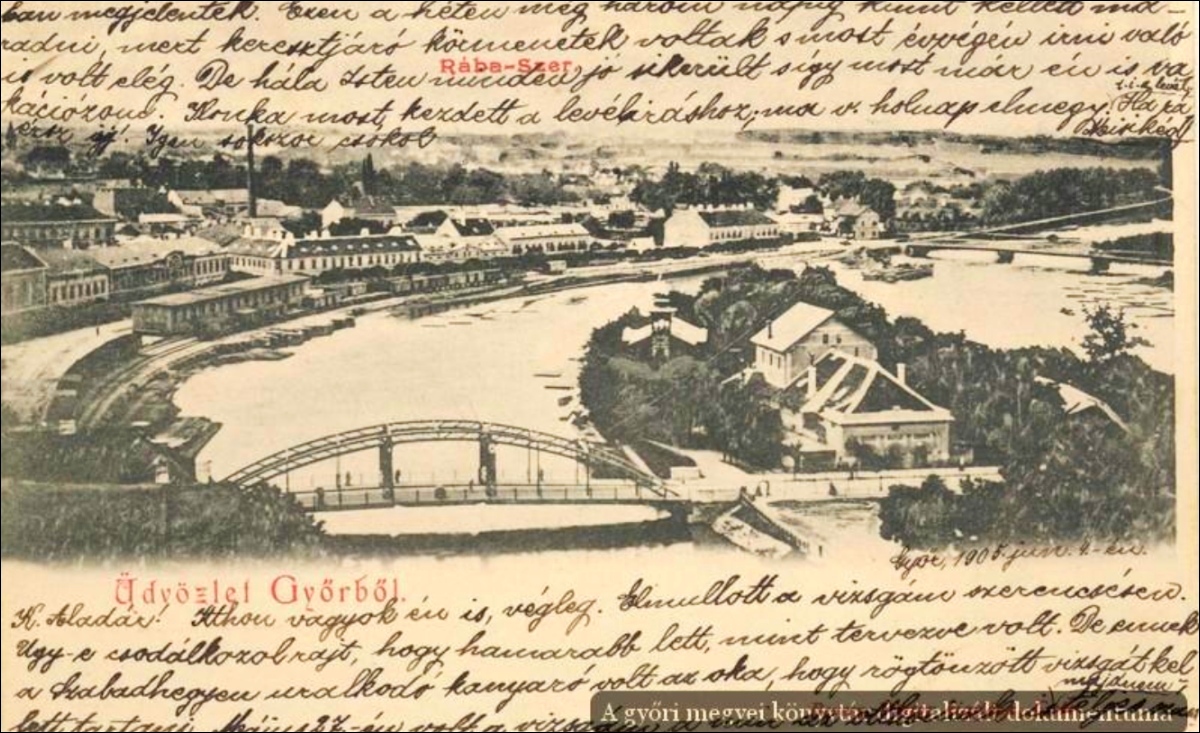 ban megjelentek. Ezen a héten még három napig kint kellett ma-
radni, mert keresztjáró körmenetek voltak s most évvégén irni való
is volt elég. De hála Isten minden jó sikerült s így most már én is va
Rába-Szer.
kációzom. Ilonka most kezdett a levéliráshoz; ma v. holnap elmegy.
érsz ij! Igen sokszor csókol
Győr, 1905. jun. 4.-én.
Üdvözlet Győrből.
K. Aladár! Itthon vagyok én is, végleg. Elmullott a vizsgám szerencsésen.
Ugy-e csodálkozol rajt, hogy hamarabb lett, mint tervezve volt. De ennek
a Szabadhegyen uralkodó kanyaró volt az oka, hogy rögtönzött vizsgát kel
majdnem
lett tartani. Május 27-én volt a vizsgám
A győri megyei könyvtár digitalizált dokumentuma